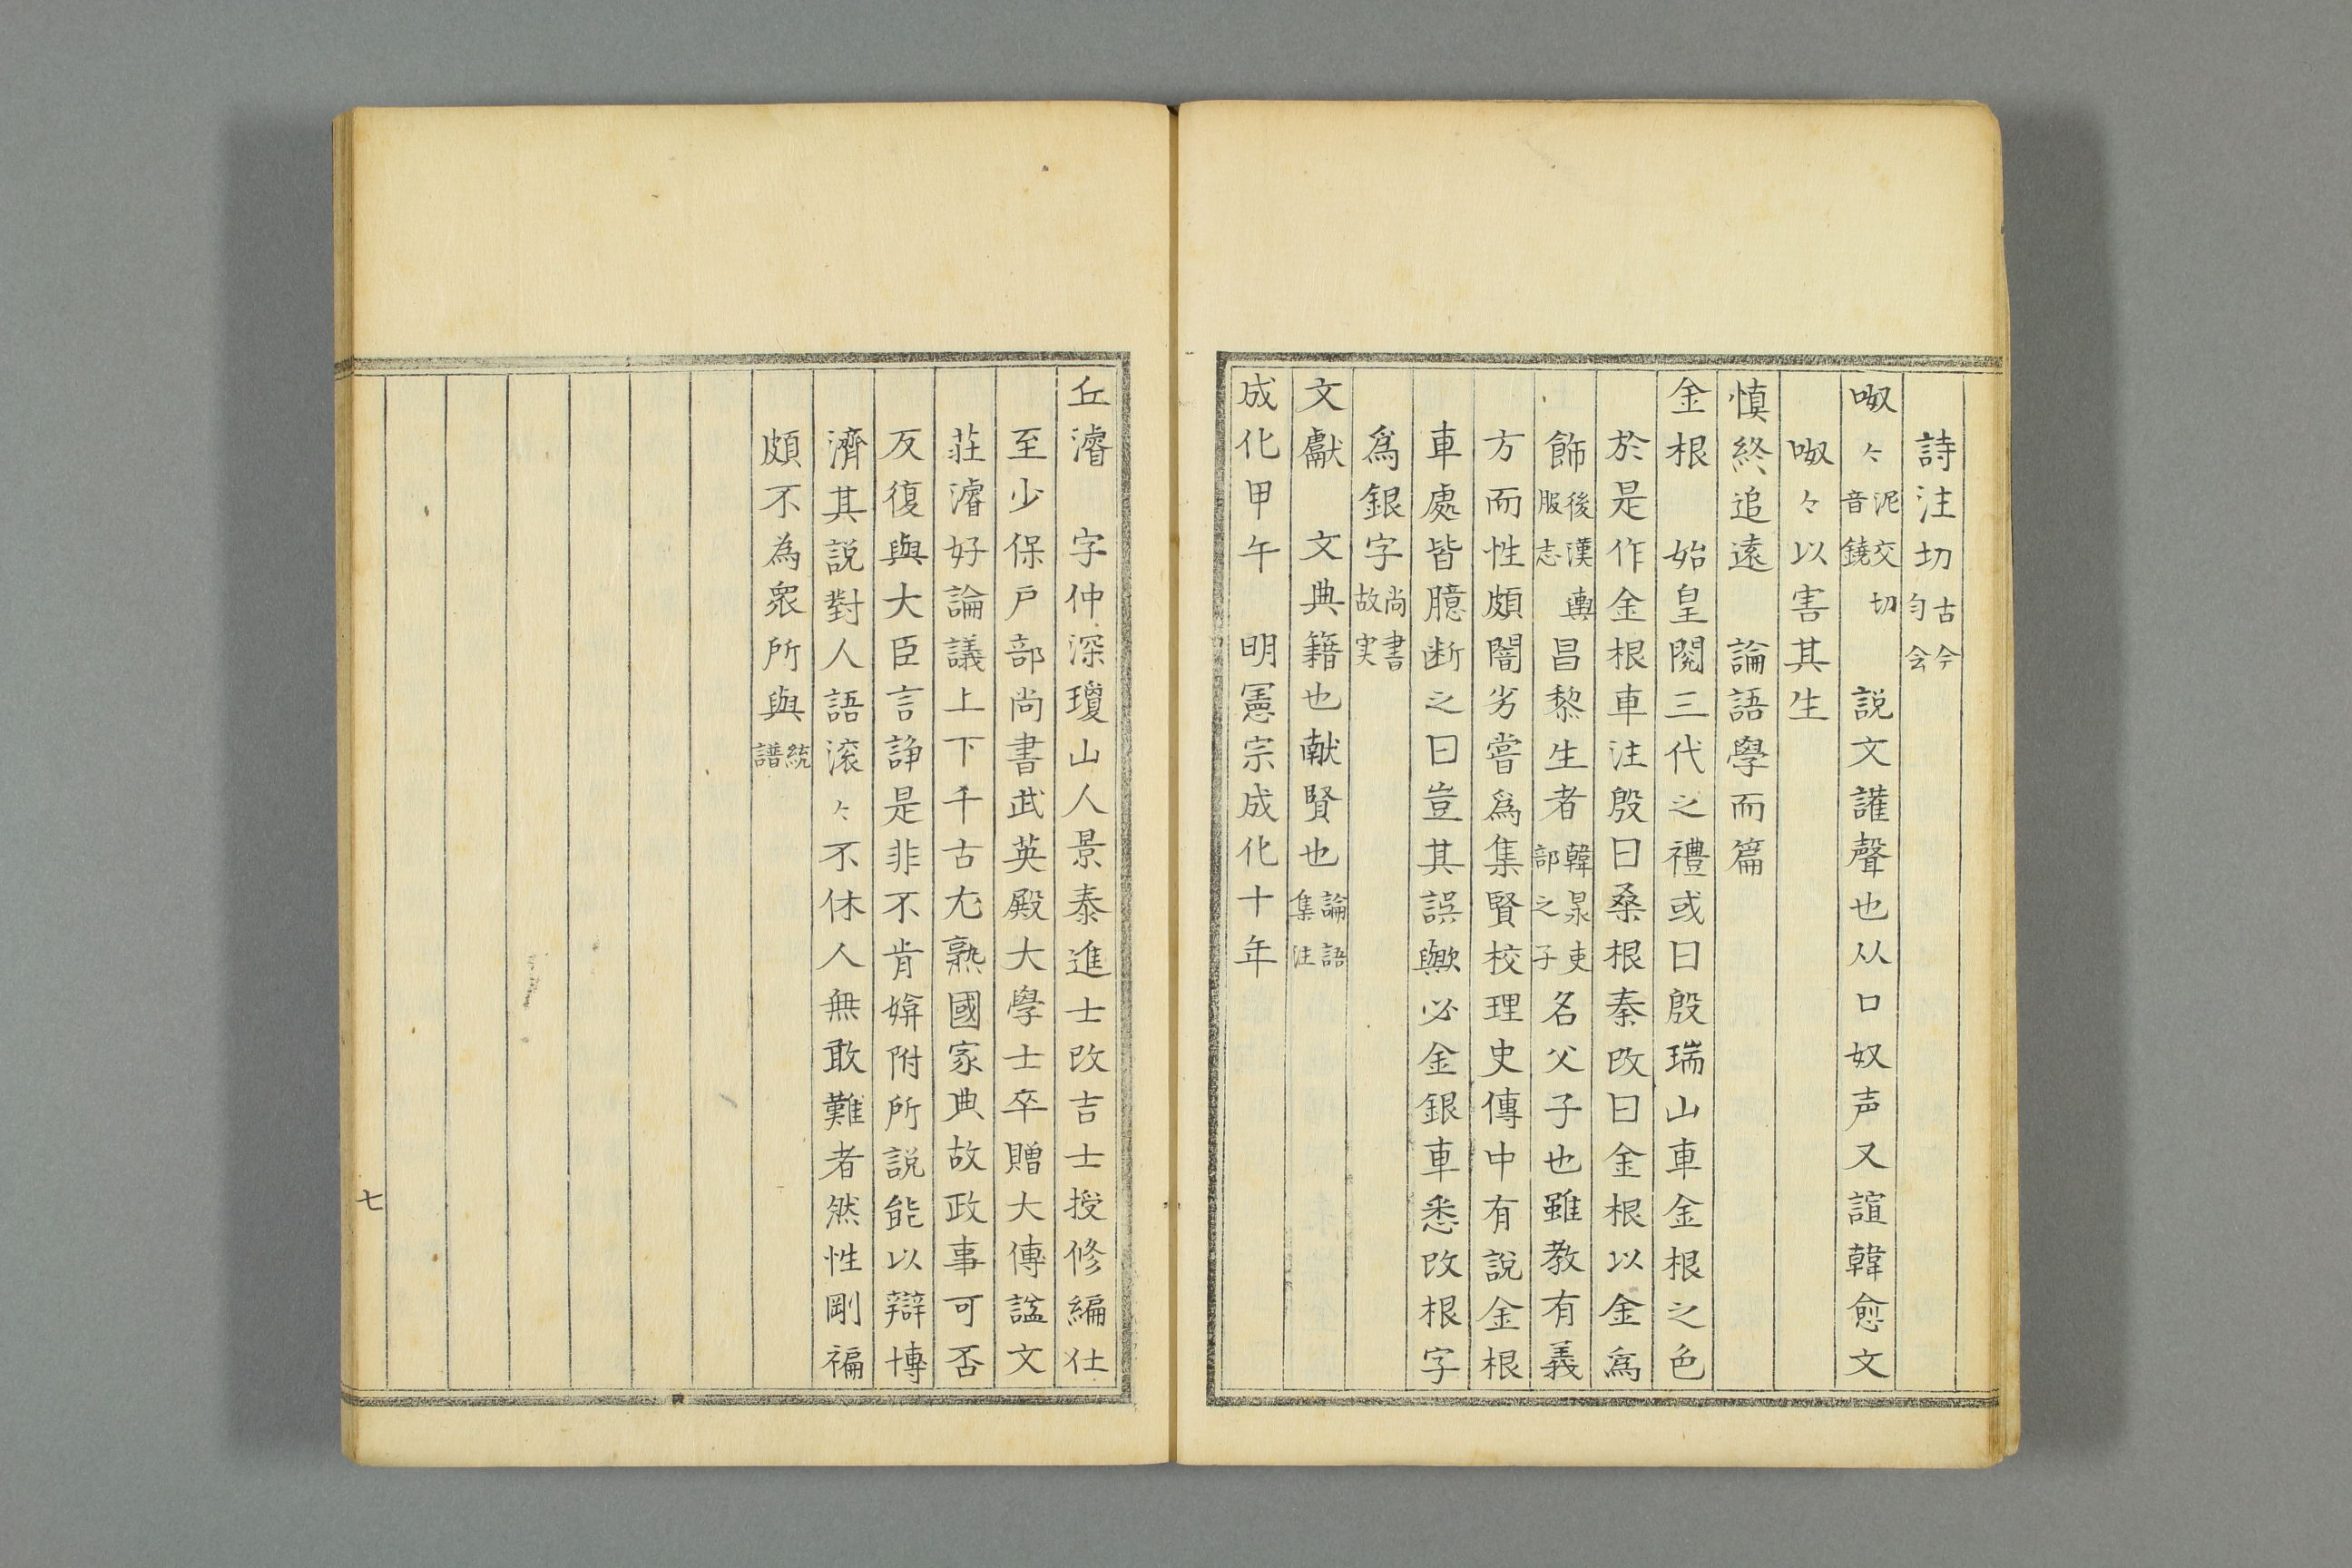 詩注切古今匀会
呶々泥交切音鐃　説文讙聲也从口奴声又諠韓愈文
呶々以害其生
慎終追遠　論語學而篇
金根　始皇閱三代之禮或曰殷瑞山車金根之色
於是作金根車注殷曰桑根秦改曰金根以金爲
飾後漢輿服志昌黎生者韓昶吏部之子名父子也雖教有義
方而性頗闇劣嘗爲集賢校理史傳中有說金根
車處皆臆断之曰豈其誤歟必金銀車悉改根字
爲銀字尚書故実
文獻　文典籍也献賢也論語集注
成化甲午　明憲宗成化十年
丘濬　字仲深瓊山人景泰進士改吉士授修編仕
至少保戸部尚書武英殿大學士卒贈大傳諡文
荘濬好論議上下千古尤熟國家典故政事可否
反復與大臣言諍是非不肯媕附所説能以辯博
濟其説對人語滚々不休人無敢難者然性剛褊
頗不為衆所與統譜
七